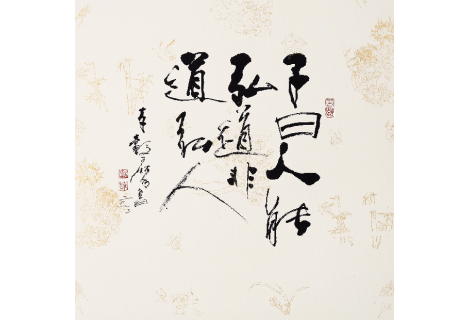 子曰人能
弘道非
道弘人